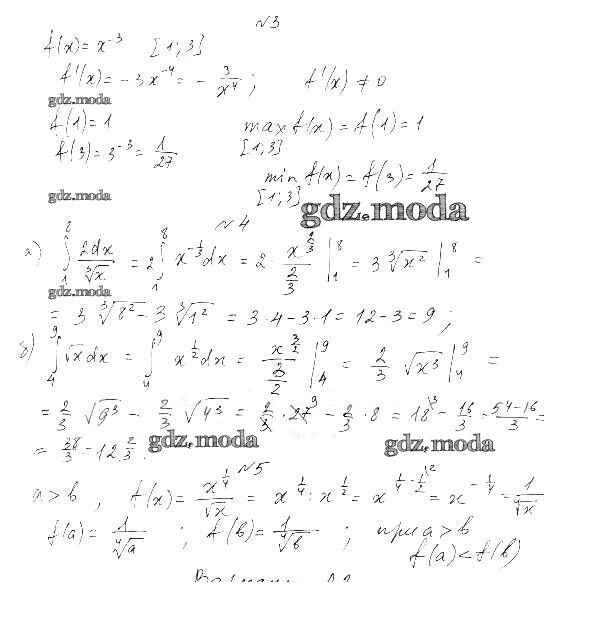 №3
f(x) = x⁻³ [1; 3]
f'(x) = -3x⁻⁴ = - 3/x⁴ ; f'(x) ≠ 0
gdz.moda
f(1) = 1 max f(x) = f(1) = 1
[1;3]
f(3) = 3⁻³ = 1/27
min f(x) = f(3) = 1/27
[1;3]
gdz.moda
gdz.moda
№4
а) ∫₁⁸ 2dx/∛x = 2∫₁⁸ x^(-1/3) dx = 2 · x^(2/3)/(2/3) |₁⁸ = 3 ∛x² |₁⁸ =
gdz.moda
= 3 ∛8² - 3 ∛1² = 3·4 - 3·1 = 12 - 3 = 9 ;
б) ∫₄⁹ √x dx = ∫₄⁹ x^(1/2) dx = x^(3/2)/(3/2) |₄⁹ = 2/3 √x³ |₄⁹ =
= 2/3 √9³ - 2/3 √4³ = 2/3 · 27⁹ - 2/3 · 8 = 18\³ - 16/3 = (54-16)/3 =
= 38/3 = 12 2/3 .
gdz.moda
gdz.moda
№5
a > b , f(x) = x^(1/4)/√x = x^(1/4) : x^(1/2) = x^(1/4 - 1/2\²) = x^(-1/4) = 1/⁴√x
f(a) = 1/⁴√a ; f(b) = 1/⁴√b ; при a > b
f(a) < f(b)